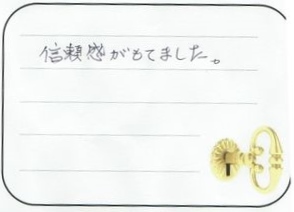 信頼感がもてました。